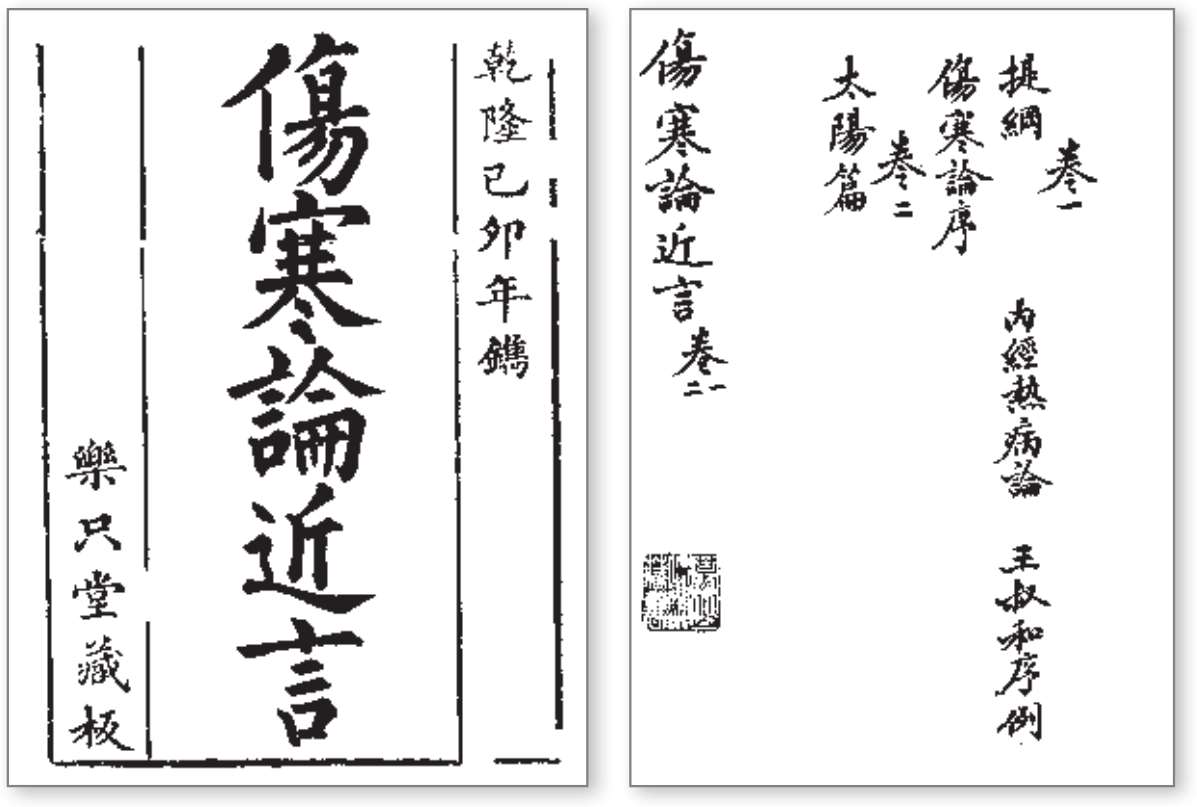 乾隆己卯年鐫
傷寒論近言
樂只堂藏板
卷一
提綱 內經熱病論 王叔和序例
傷寒論序
卷二
太陽篇
傷寒論近言 卷一二